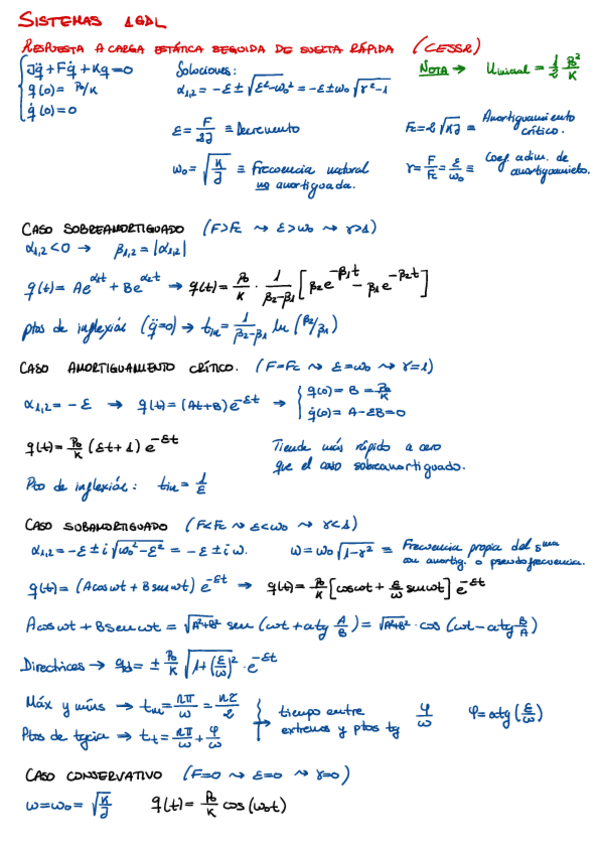 SISTEMAS 1GDL
RESPUESTA A CARGA ESTÁTICA SEGUIDA DE SUELTA RÁPIDA (CESSR)
Jq̈ + Fq̇ + Kq = 0
q(0) = P₀/K
q̇(0) = 0
Soluciones:
α₁,₂ = -ε ± √(ε² - ω₀²) = -ε ± ω₀ √(γ² - 1)
NOTA → Uinicial = 1/2 P₀²/K
ε = F/2J ≡ Decremento
Fc = 2√(KJ) ≡ Amortiguamiento crítico.
ω₀ = √(K/J) ≡ Frecuencia natural no amortiguada.
γ = F/Fc = ε/ω₀ ≡ Coef. adim. de amortiguamiento.
CASO SOBREAMORTIGUADO (F>Fc ⇝ ε>ω₀ ⇝ γ>1)
α₁,₂ < 0 → β₁,₂ = |α₁,₂|
q(t) = Ae^(α₁t) + Be^(α₂t) → q(t) = P₀/K · 1/(β₂-β₁) [β₂e^(-β₁t) - β₁e^(-β₂t)]
ptos de inflexión (q̈=0) → tin = 1/(β₂-β₁) ln (β₂/β₁)
CASO AMORTIGUAMIENTO CRÍTICO. (F=Fc ⇝ ε=ω₀ ⇝ γ=1)
α₁,₂ = -ε → q(t) = (At+B) e^(-εt) → { q(0) = B = P₀/K
q̇(0) = A-εB = 0
q(t) = P₀/K (εt + 1) e^(-εt)
Tiende más rápido a cero
que el caso sobreamortiguado.
Pto de inflexión: tin = 1/ε
CASO SUBAMORTIGUADO (F<Fc ⇝ ε<ω₀ ⇝ γ<1)
α₁,₂ = -ε ± i √(ω₀² - ε²) = -ε ± i ω. ω = ω₀ √(1-γ²) ≡ Frecuencia propia del sᵐᵃ
con amortig. o pseudofrecuencia.
q(t) = (A cos ωt + B sen ωt) e^(-εt) → q(t) = P₀/K [cos ωt + ε/ω sen ωt] e^(-εt)
A cos ωt + B sen ωt = √(A²+B²) sen (ωt + atg A/B) = √(A²+B²) · cos (ωt - atg B/A)
Directrices → qd = ± P₀/K √(1+(ε/ω)²) · e^(-εt)
Máx y míns → tm = nπ/ω = nτ/2
Ptos de tgcia → tt = nπ/ω + φ/ω
tiempo entre
extremos y ptos tg φ/ω φ = atg (ε/ω)
CASO CONSERVATIVO (F=0 ⇝ ε=0 ⇝ γ=0)
ω = ω₀ = √(K/J) q(t) = P₀/K cos (ω₀t)